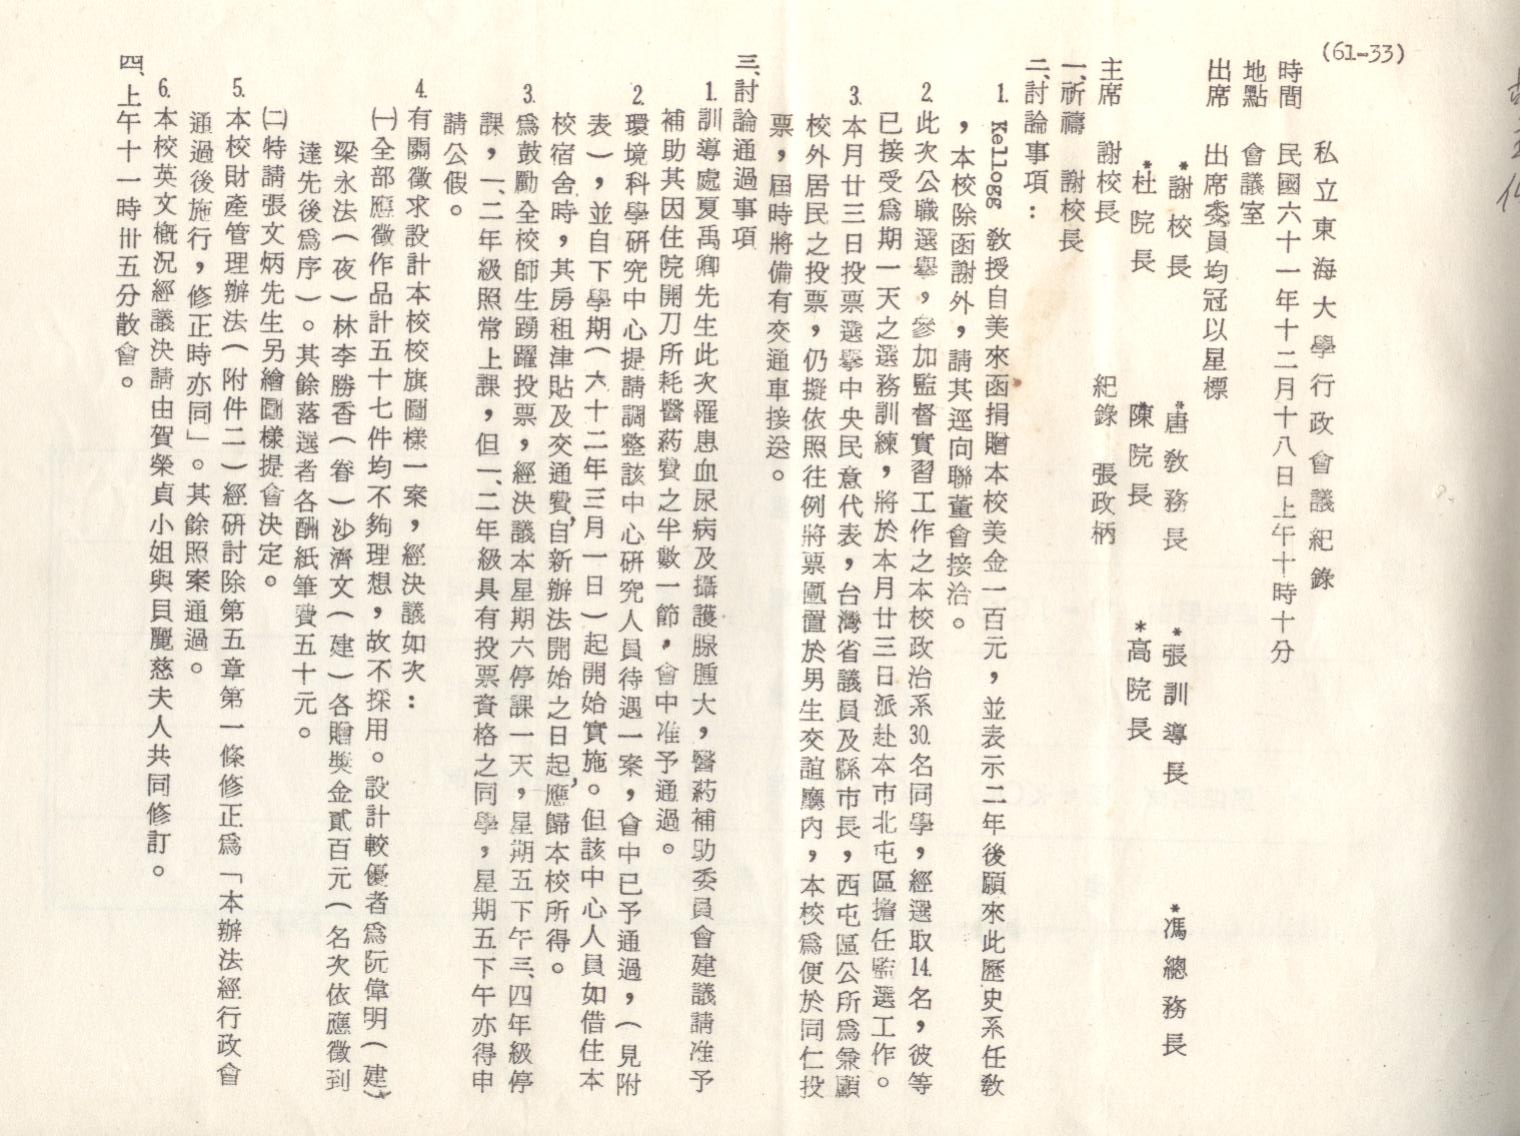 (61-33)
私立東海大學行政會議紀錄
時間 民國六十一年十二月十八日上午十時十分
地點 會議室
出席 出席委員均冠以星標
*謝校長 *唐教務長 *張訓導長 *馮總務長
*杜院長 *陳院長 *高院長
主席 謝校長 紀錄 張政柄
一、祈禱 謝校長
二、討論事項：
1. Kellogg 教授自美來函捐贈本校美金一百元，並表示二年後願來此歷史系任教
，本校除函謝外，請其逕向聯董會接洽。
2. 此次公職選舉，參加監督實習工作之本校政治系30.名同學，經選取14.名，彼等
已接受爲期一天之選務訓練，將於本月廿三日派赴本市北屯區擔任監選工作。
3. 本月廿三日投票選舉中央民意代表，台灣省議員及縣市長，西屯區公所爲兼顧
校外居民之投票，仍擬依照往例將票匭置於男生交誼廳內，本校爲便於同仁投
票，屆時將備有交通車接送。
三、討論通過事項
1. 訓導處夏禹卿先生此次罹患血尿病及攝護腺腫大，醫葯補助委員會建議請准予
補助其因住院開刀所耗醫葯費之半數一節，會中准予通過。
2. 環境科學研究中心提請調整該中心研究人員待遇一案，會中已予通過，（見附
表），並自下學期（六十二年三月一日）起開始實施。但該中心人員如借住本
校宿舍時，其房租津貼及交通費，自新辦法開始之日起，應歸本校所得。
3. 爲鼓勵全校師生踴躍投票，經決議本星期六停課一天，星期五下午三、四年級停
課，一、二年級照常上課，但一、二年級具有投票資格之同學，星期五下午亦得申
請公假。
4. 有關徵求設計本校校旗圖樣一案，經決議如次：
㈠全部應徵作品計五十七件均不夠理想，故不採用。設計較優者爲阮偉明（建）
梁永法（夜）林李勝香（眷）沙濟文（建）各贈獎金貳百元（名次依應徵到
達先後爲序）。其餘落選者各酬紙筆費五十元。
㈡特請張文炳先生另繪圖樣提會決定。
5. 本校財產管理辦法（附件二）經研討除第五章第一條修正爲「本辦法經行政會
通過後施行，修正時亦同」。其餘照案通過。
6. 本校英文概況經議決請由賀榮貞小姐與貝麗慈夫人共同修訂。
四、上午十一時卅五分散會。